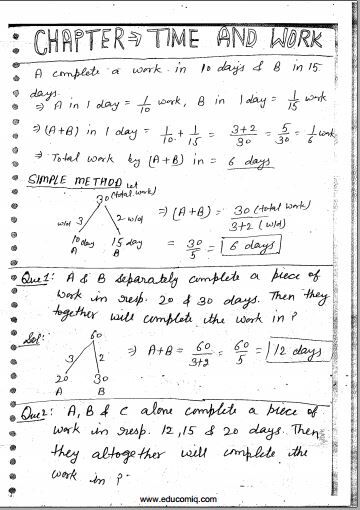 CHAPTER → TIME AND WORK
A complete a work in 10 days & B in 15
days.
⇒ A in 1 day = 1/10 work, B in 1 day = 1/15 work
⇒ (A+B) in 1 day = 1/10 + 1/15 = 3+2/30 = 5/30 = 1/6 work
⇒ Total work by (A+B) in = 6 days
SIMPLE METHOD let
30 (total work)
w/d 3 2 w/d
10 day 15 day
A B
⇒ (A+B) = 30 (total work)/3+2 (w/d)
= 30/5 = 6 days
Que 1: A & B separately complete a piece of
work in resp. 20 & 30 days. Then they
together will complete the work in ?
Sol: 60
3 2
20 30
A B
⇒ A+B = 60/3+2 = 60/5 = 12 days
Que 2: A, B & C alone complete a piece of
work in resp. 12, 15 & 20 days. Then
they altogether will complete the
work in ?
www.educomiq.com